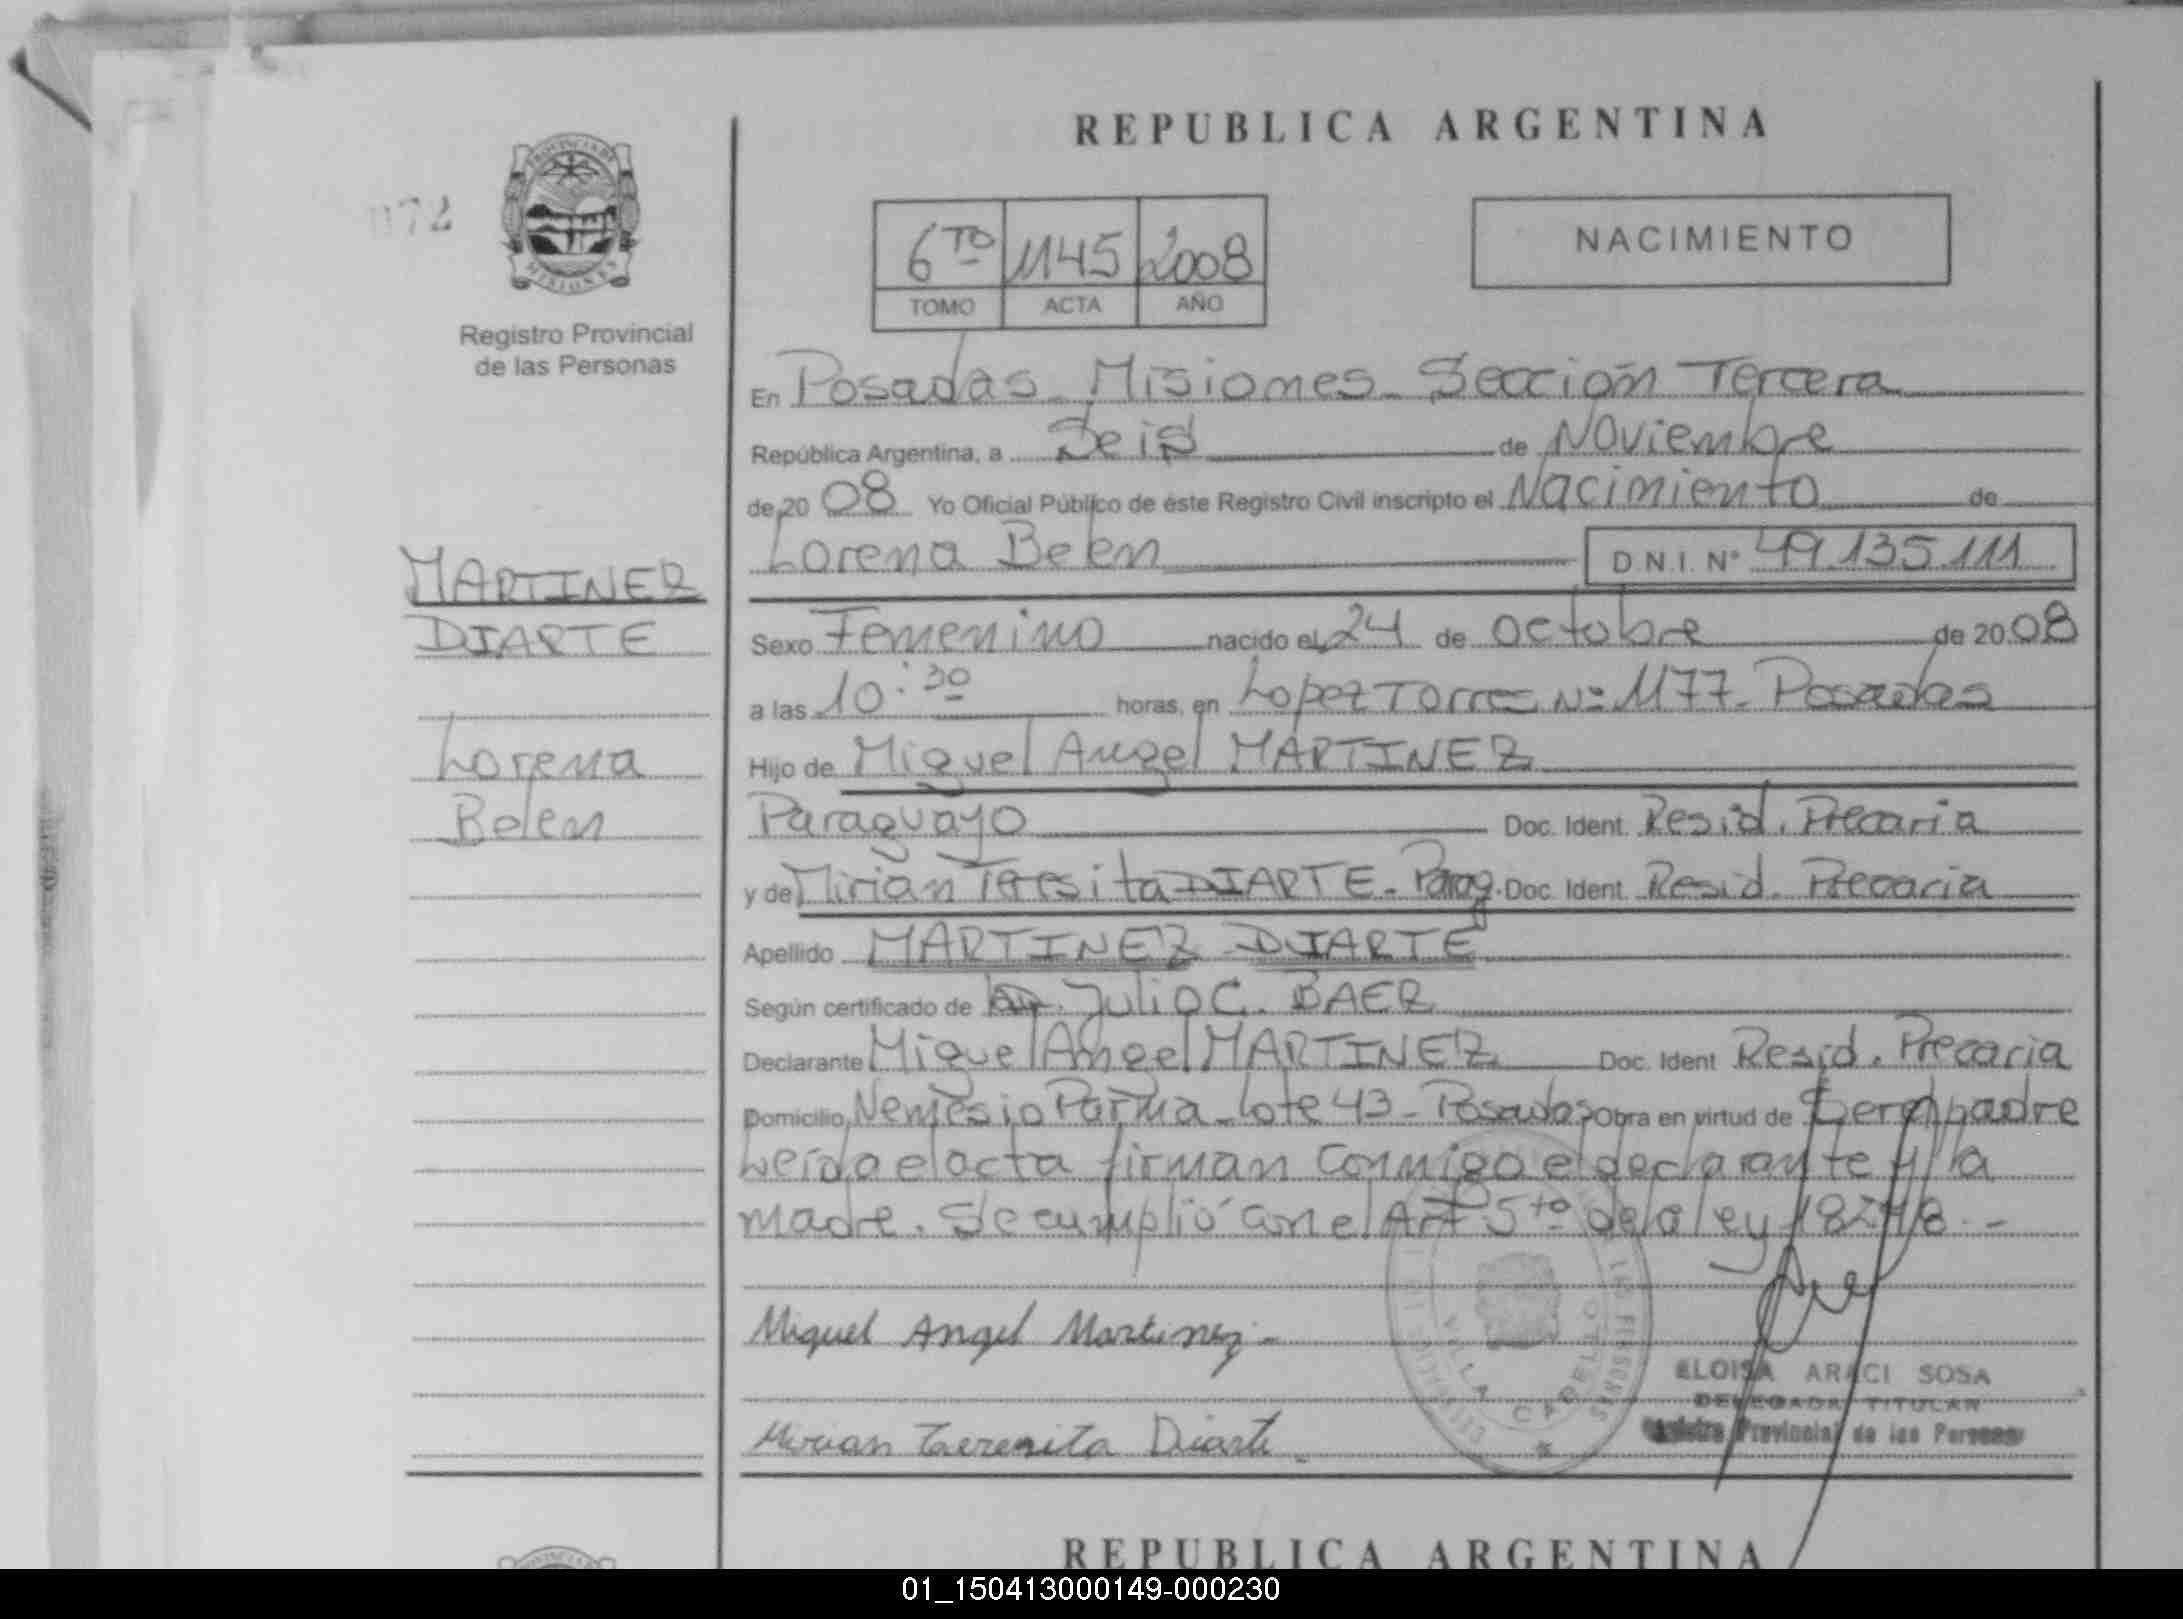 REPUBLICA ARGENTINA
072
PROVINCIA DE
MISIONES
Registro Provincial
de las Personas
6TO 1145 2008
TOMO ACTA AÑO
NACIMIENTO
En Posadas - Misiones - Sección Tercera
República Argentina, a Seis de Noviembre
de 20 08 Yo Oficial Público de éste Registro Civil inscripto el Nacimiento de
Lorena Belen D.N.I. N° 49.135.111
MARTINEZ
DIARTE
Lorena
Belen
Sexo Femenino nacido el 24 de octubre de 20 08
a las 10:30 horas, en Lopez Torres Nº 1177 - Posadas
Hijo de Miguel Angel MARTINEZ
Paraguayo Doc. Ident. Resid. Precaria
y de Mirian Teresita DIARTE - Parag. Doc. Ident. Resid. Precaria
Apellido MARTINEZ DIARTE
Según certificado de Julio C. BAER
Declarante Miguel Angel MARTINEZ Doc. Ident. Resid. Precaria
Domicilio Nemesio Parma - lote 43 - Posadas Obra en virtud de ser padre
Leída el acta firman conmigo el declarante y la
madre. Se cumplió con el Art 5to de la ley 18248.-
Miguel Angel Martinez
Mirian Teresita Diarte
VILLA CABELLO
ELOISA ARACI SOSA
DELEGADA TITULAR
Registro Provincial de las Personas
REPUBLICA ARGENTINA
01_150413000149-000230